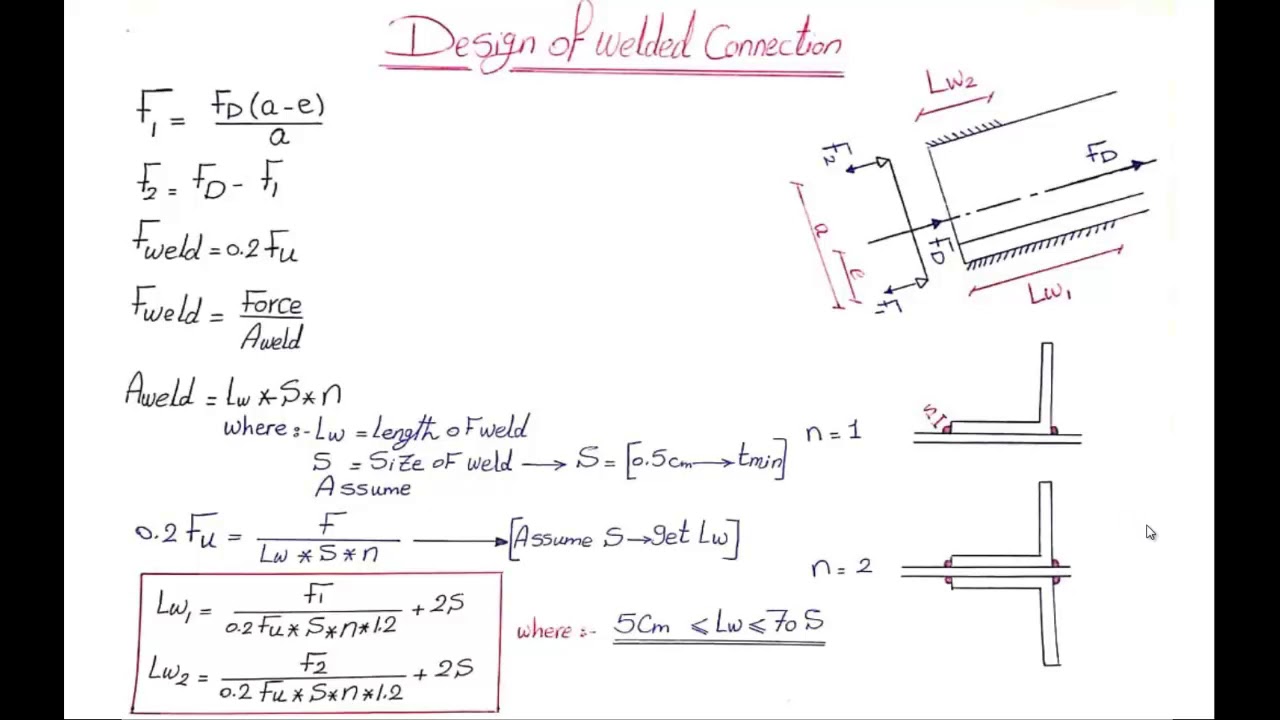 Design of welded Connection
F1 = FD (a-e) / a
F2 = FD - F1
Fweld = 0.2 Fu
Fweld = Force / Aweld
Aweld = Lw * S * n
where :- Lw = Length of weld
S = Size of weld → S = [0.5cm → tmin]
Assume
0.2 Fu = F / Lw * S * n → [Assume S → get Lw]
Lw1 = F1 / 0.2 Fu * S * n * 1.2 + 2S
Lw2 = F2 / 0.2 Fu * S * n * 1.2 + 2S
where :- 5cm ≤ Lw ≤ 70 S
Lw2
F2
FD
a
e
FD
F1
Lw1
S
n = 1
n = 2